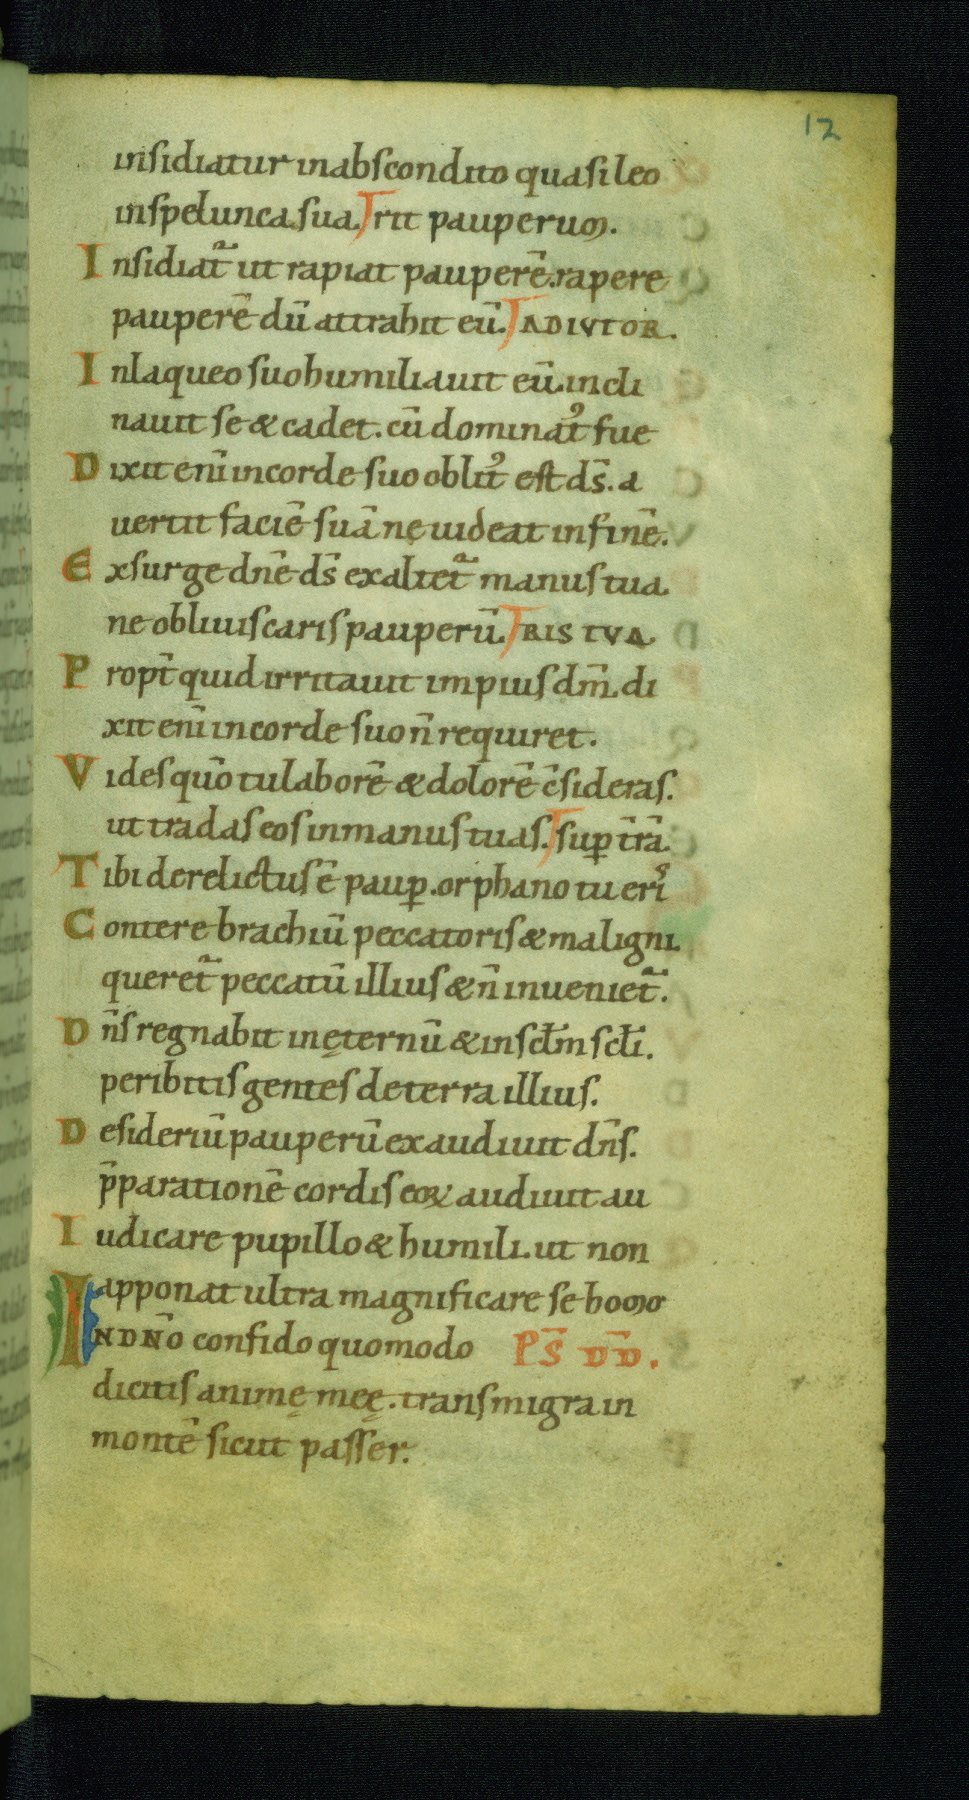 12
insidiatur in abscondito quasi leo
in spelunca sua. rit pauperum.
Insidiat᷑ ut rapiat pauperē. rapere
pauperē dū attrahit eū. ADIVTOR.
In laqueo suo humiliauit eū. incli
nauit se & cadet. cū dominat᷒ fue
Dixit enī in corde suo oblit᷒ est ds̄. a
uertit faciē suā ne uideat in finē.
Exsurge dn̄e ds̄ exaltet᷑ manus tua.
ne obliuiscaris pauperū. RIS TVA.
Propt̄ quid irritauit impius dm̄. di
xit enī in corde suo n̄ requiret.
Vides qūo tu laborē & dolorē c̄sideras.
ut tradas eos in manus tuas. suꝑ t̄rā.
Tibi derelictus ē pauꝑ. orphano tu erı᷒
Contere brachiū peccatoris & maligni.
queret᷑ peccatū illius & n̄ inueniet᷑.
Dn̄s regnabit in ęternū & in sc̄lm sc̄li.
peribitis gentes de terra illius.
Desideriū pauperū exaudiuit dn̄s.
p̄parationē cordis eoꝝ audiuit au
Iudicare pupillo & humili. ut non
apponat ultra magnificare se homo
IN DN̄O confido quomodo PS̄ DD̄.
dicitis animę meę. transmigra in
montē sicut passer.